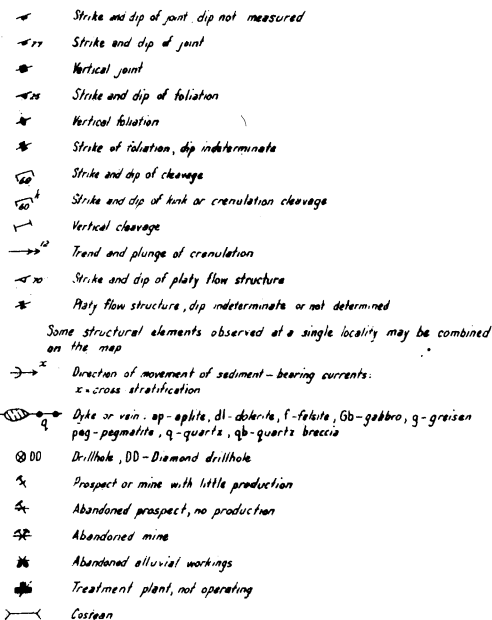 Strike and dip of joint, dip not measured
77 Strike and dip of joint
Vertical joint
25 Strike and dip of foliation
Vertical foliation
Strike of foliation, dip indeterminate
60 Strike and dip of cleavage
60 k Strike and dip of kink or crenulation cleavage
Vertical cleavage
12 Trend and plunge of crenulation
70 Strike and dip of platy flow structure
Platy flow structure, dip indeterminate or not determined
Some structural elements observed at a single locality may be combined
on the map
x Direction of movement of sediment-bearing currents:
x=cross stratification
q Dyke or vein. ap-aplite, dl-dolerite, f-felsite, Gb-gabbro, g-greisen
peg-pegmatite, q-quartz, qb-quartz breccia
DD Drillhole, DD-Diamond drillhole
Prospect or mine with little production
Abandoned prospect, no production
Abandoned mine
Abandoned alluvial workings
Treatment plant, not operating
Costean